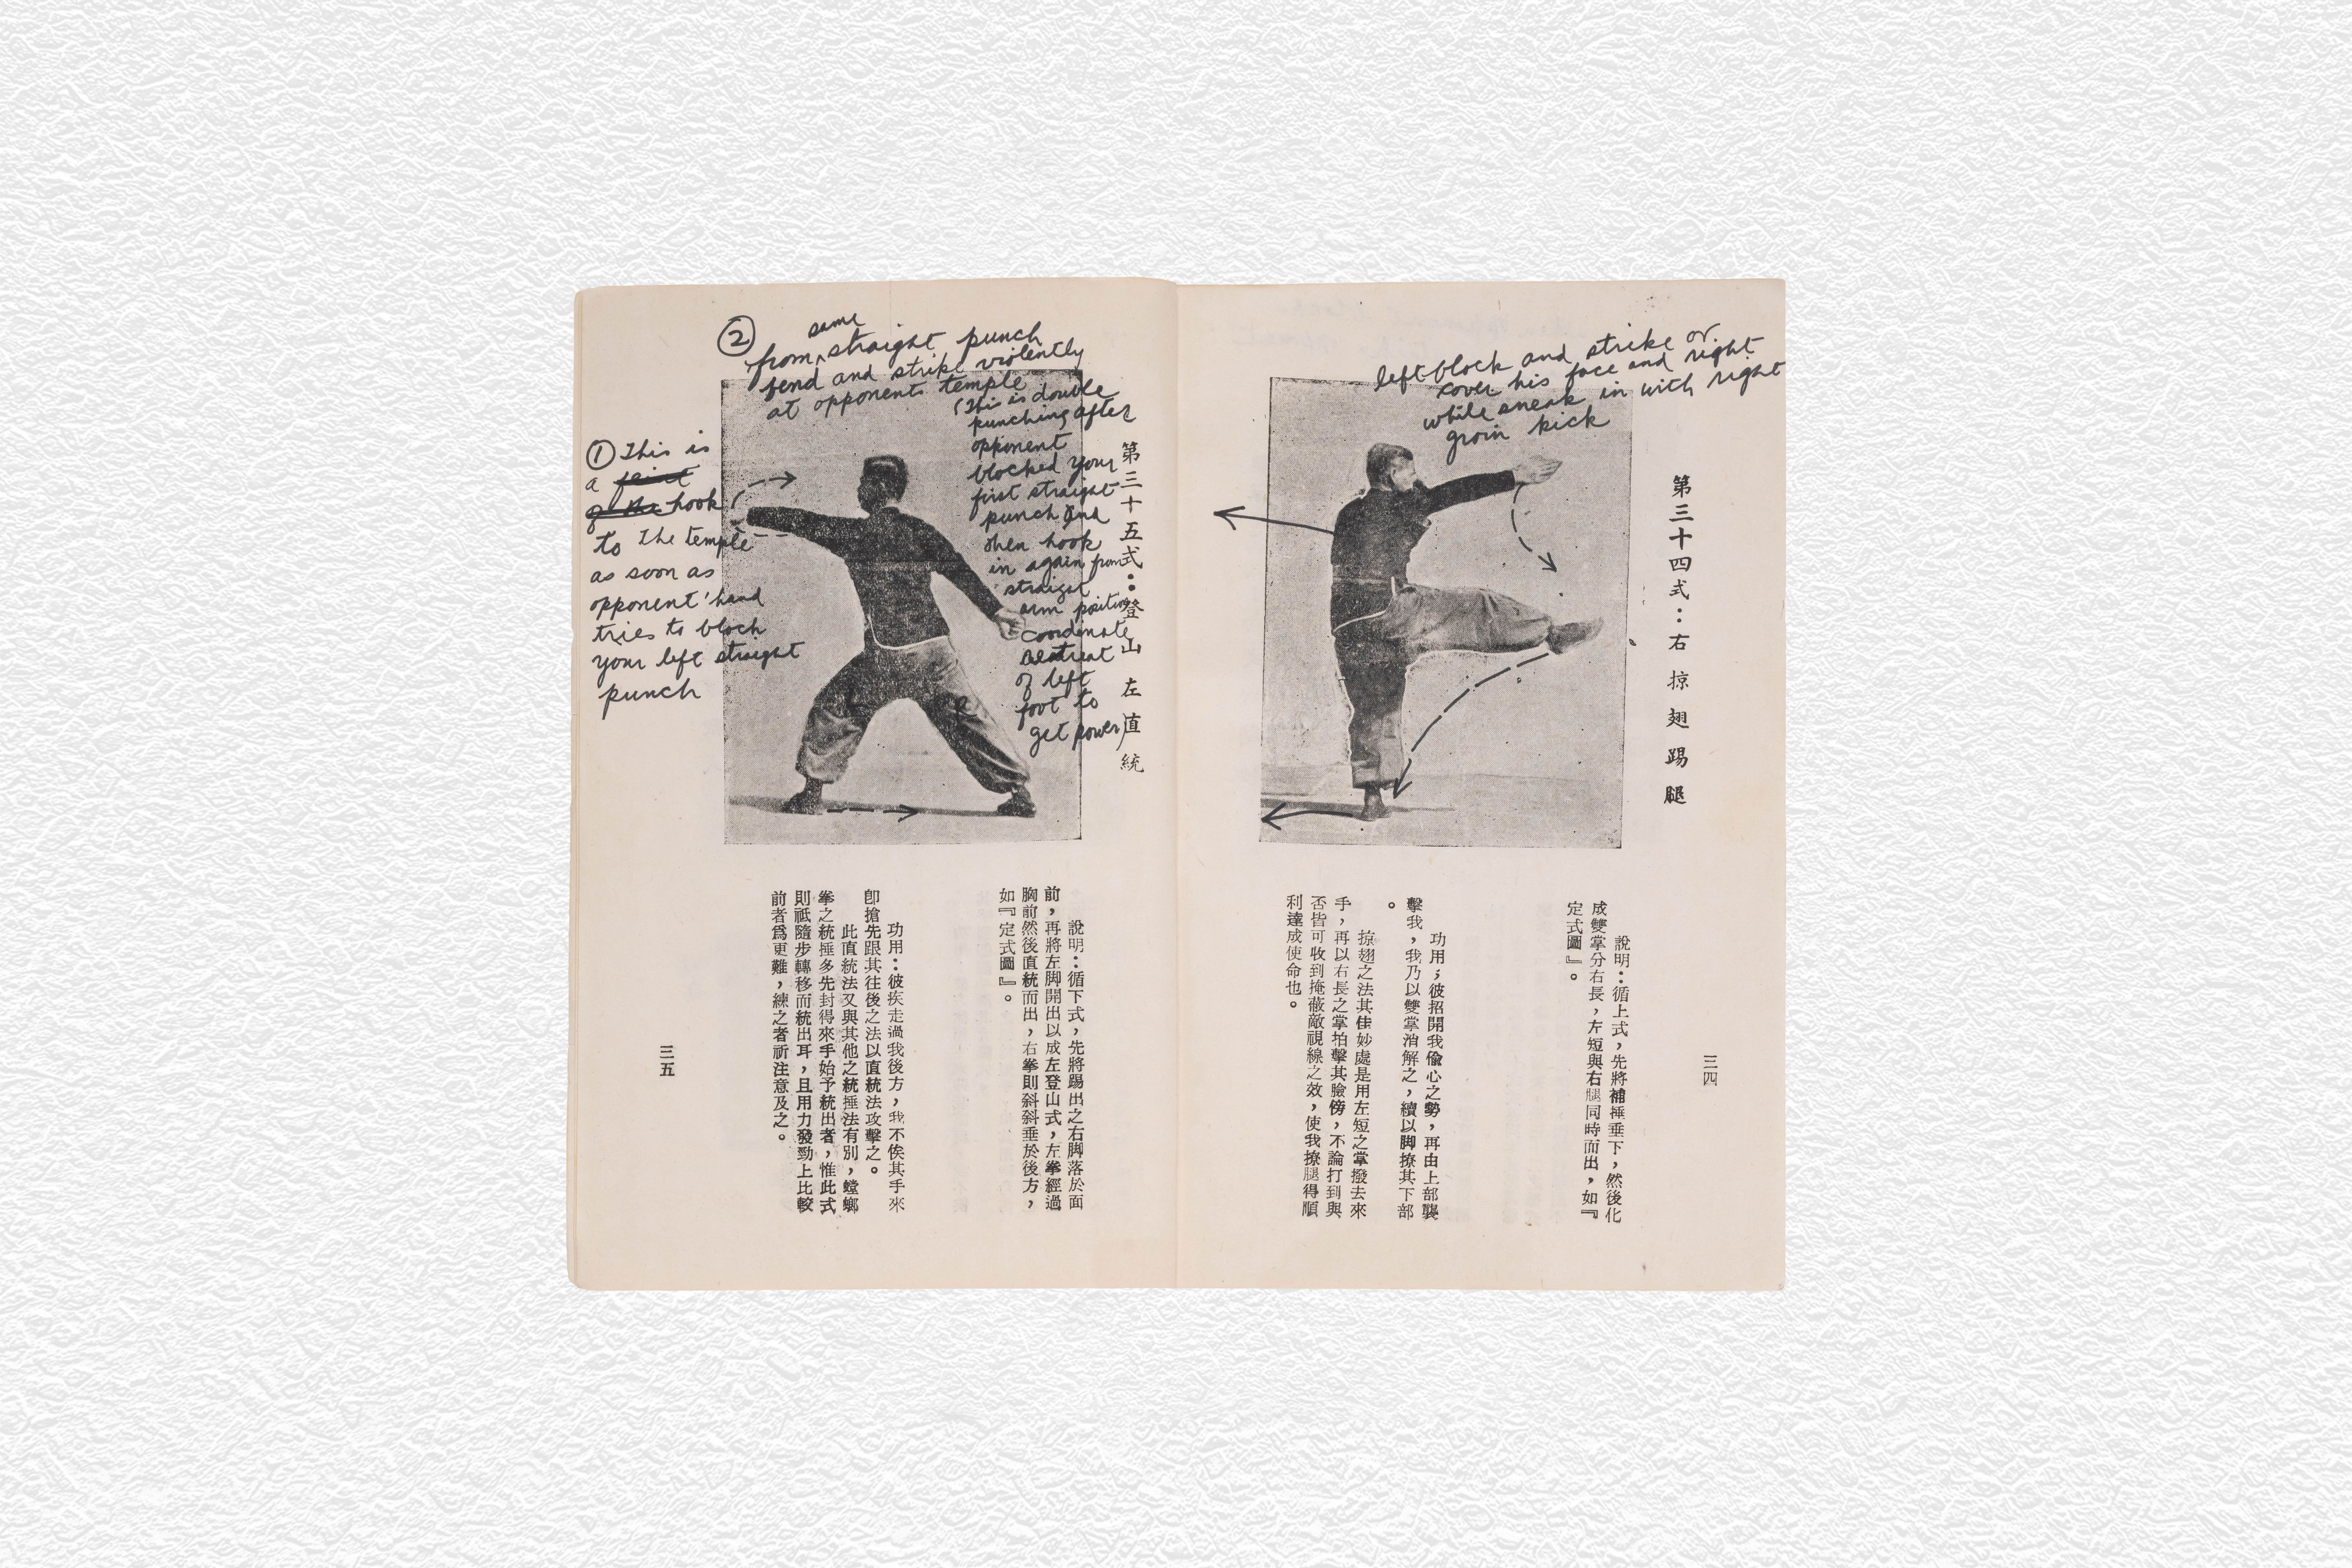 left block and strike or
cover his face and right
while sneak in with right
groin kick
第三十四式：右掠翅踢腿
說明：循上式，先將補捶垂下，然後化
成雙掌分右長，左短與右腿同時而出，如『
定式圖』。
功用；彼招開我偷心之勢，再由上部襲
擊我，我乃以雙掌消解之，續以脚撩其下部
。
掠翅之法其佳妙處是用左短之掌撥去來
手，再以右長之掌拍擊其臉傍，不論打到與
否皆可收到掩蔽敵視線之效，使我撩腿得順
利達成使命也。
三四
第三十五式：登山左直統
① This is
a
hook
to the temple
as soon as
opponent' hand
tries to block
your left straight
punch
② same
from straight punch
bend and strike violently
at opponents temple
(This is double
punching after
opponent
blocked your
first straight
punch and
then hook
in again from
straight
arm position
coordenate
retreat
of left
foot to
get power)
說明：循下式，先將踢出之右脚落於面
前，再將左脚開出以成左登山式，左拳經過
胸前然後直統而出，右拳則斜斜垂於後方，
如『定式圖』。
功用：彼疾走過我後方，我不俟其手來
卽搶先跟其往後之法以直統法攻擊之。
此直統法又與其他之統捶法有別，螳螂
拳之統捶多先封得來手始予統出者，惟此式
則祇隨步轉移而統出耳，且用力發勁上比較
前者爲更難，練之者祈注意及之。
三五